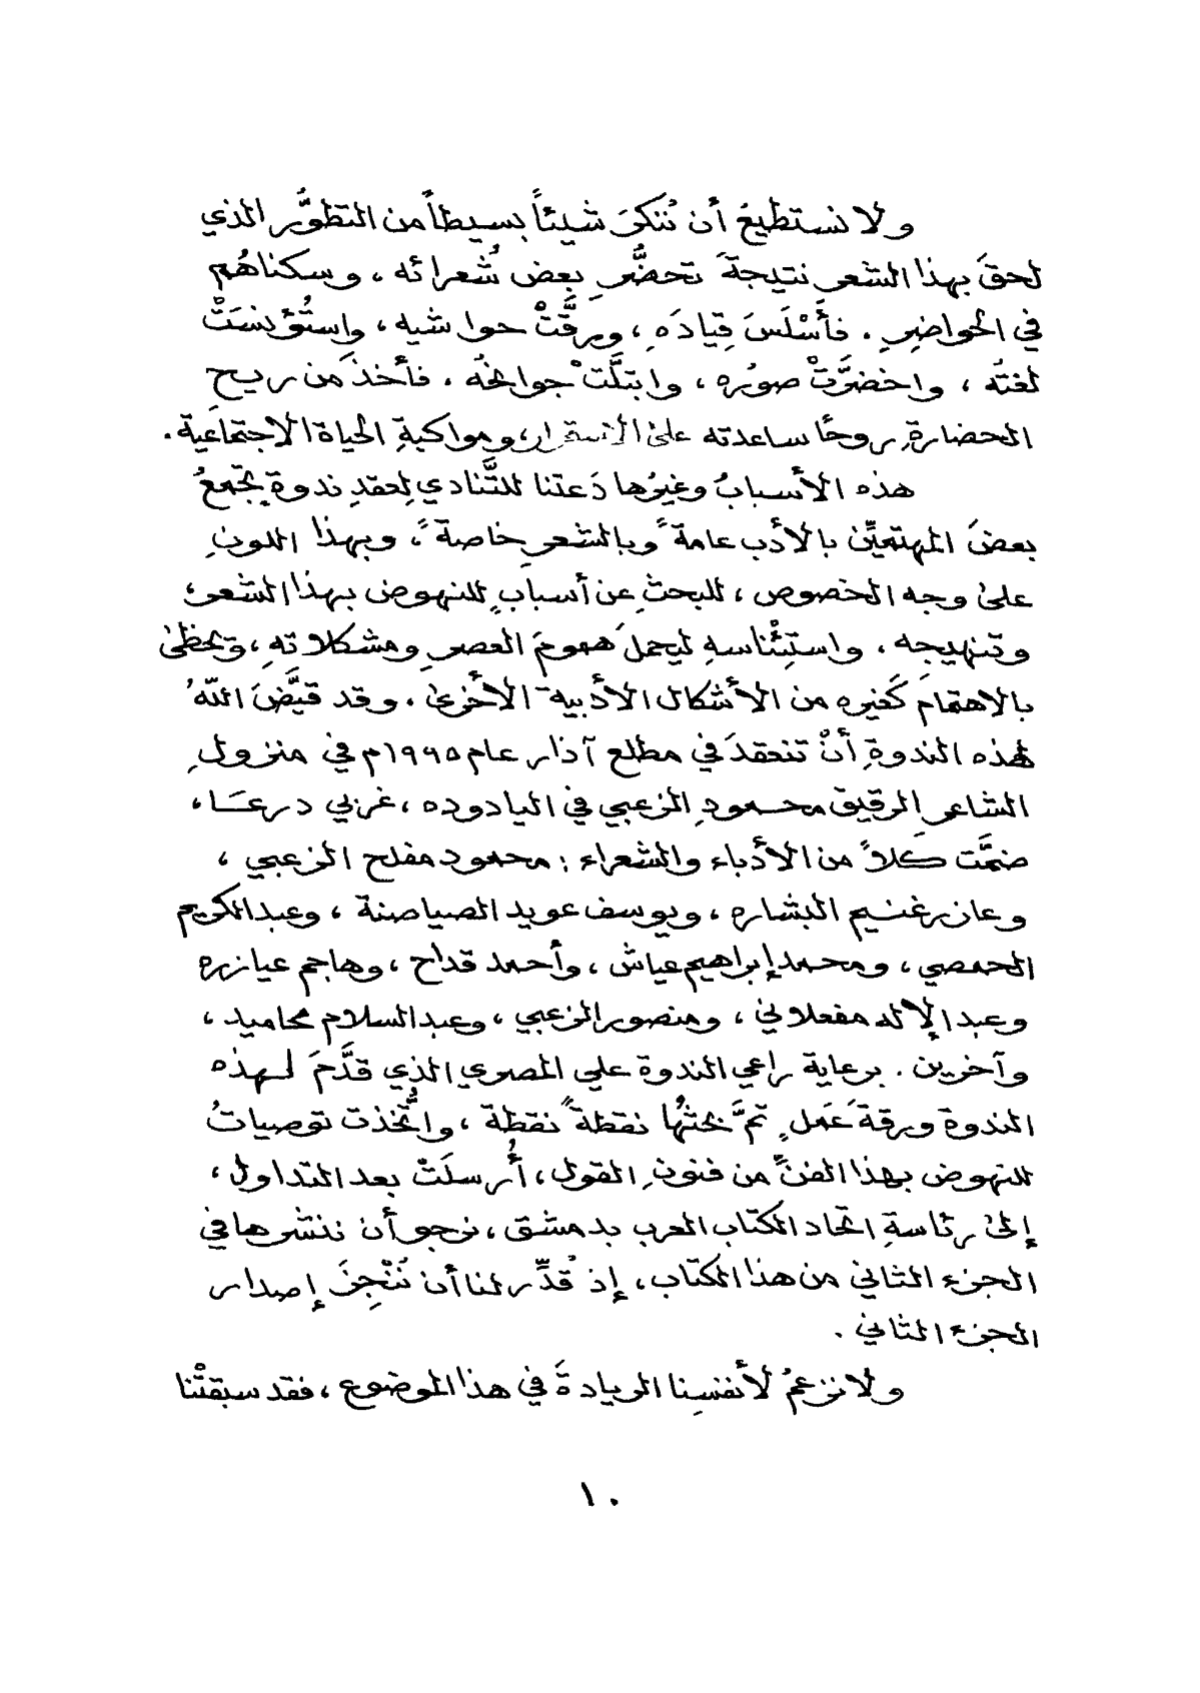 ولا نستطيعُ أن نُنكرَ شيئاً بسيطاً من التطوُّر الذي
لحقَ بهذا الشعر نتيجةَ تحضُّرِ بعض شُعرائه ، وسكناهُم
في الحواضرِ . فأَسْلَسَ قِيادَه ، ورقَّتْ حواشيه ، واستُؤنسَتْ
لغتُه ، واخضرَّتْ صوُره ، وابتلَّتْ جوانحُه . فأخذَ من ريح
الحضارةِ روحًا ساعدته على الاستمرار، ومواكبةِ الحياة الاجتماعية .
هذه الأسبابُ وغيرُها دَعتنا للتَّنادي لعقدِ ندوةٍ تجمعُ
بعضَ المهتمِّين بالأدب عامةً وبالشعرِ خاصةً ، وبهذا اللونِ
على وجه الخصوص ، للبحثِ عن أسبابٍ للنهوض بهذا الشعر ،
وتنهيجِه ، واستِئْناسهِ ليحملَ همومَ العصرِ ومشكلاتهِ ، ويحظى
بالاهتمام كَغيره من الأشكال الأدبية الأُخرى . وقد قيَّضَ اللهُ
لهذه الندوةِ أنْ تنعقدَ في مطلع آذار عام ١٩٩٥م في منزولِ
الشاعرِ الرقيق محمودِ الزعبي في اليادوده ، غربي درعا ،
ضمَّت كلاً من الأدباء والشعراء : محمود مفلح الزعبي ،
وعازر غنيم البشاره ، ويوسف عويد الصياصنة ، وعبد الكريم
الحمصي ، ومحمد إبراهيم عياش ، وأحمد قداح ، وهاجم عيازره
وعبد الإله مفعلاني ، ومنصور الزعبي ، وعبد السلام محاميد ،
وآخرين . برعاية راعي الندوة علي المصري الذي قدَّمَ لهذه
الندوة ورقةَ عَملٍ تمَّ بحثُها نقطةً نقطة ، واتُّخذت توصياتُ
للنهوض بهذا الفنِّ من فنونِ القول ، أُرسلَتْ بعد التداول ،
إلى رئاسةِ اتحاد الكتاب العرب بدمشق ، نرجو أن ننشرها في
الجزء الثاني من هذا الكتاب ، إذ قُدِّر لنا أن نُنْجِزَ إصدار
الجزء الثاني .
ولا نزعمُ لأنفسِنا الريادةَ في هذا الموضوع ، فقد سبقتْنا
١٠